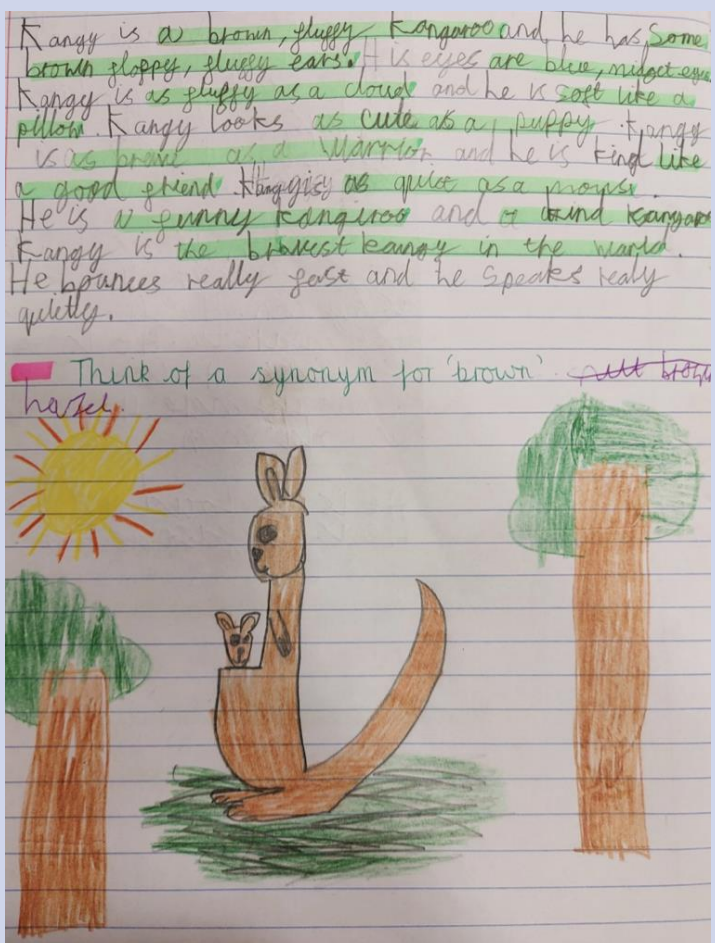 Kangy is a brown, fluggy Kangaroo and he has some
brown floppy, fluggy ears. His eyes are blue, midget eyes.
Kangy is as fluffy as a cloud and he is soft like a
pillow. Kangy looks as cute as a puppy. Kangy
is as brave as a warrior and he is kind like
a good friend. Kangy is as quiet as a mouse.
He is a funny kangiroo and a kind kangaro
Kangy is the bravest kangy in the world.
He bounces really fast and he speaks realy
quietly.
Think of a synonym for 'brown'. nutt brown
hazel.